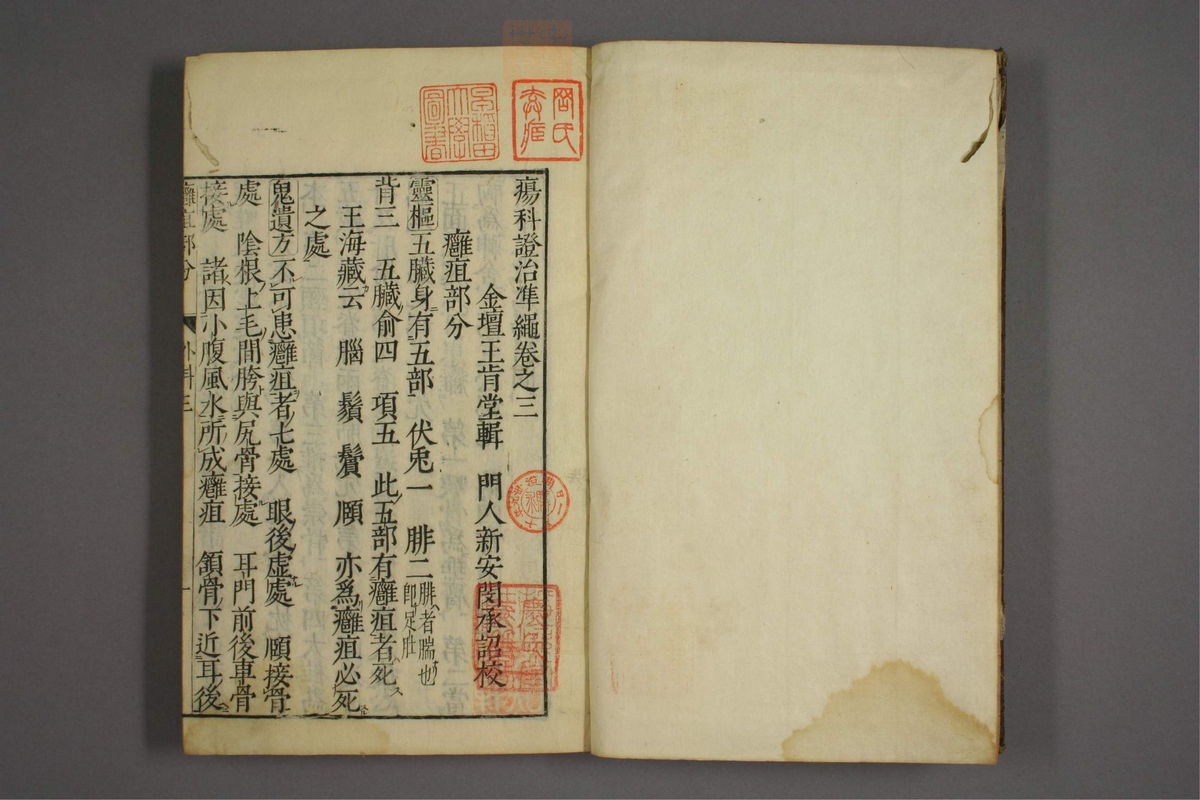 瘍科證治準繩卷之三
金壇王肯堂輯 門人新安閔承詔校
癰疽部分
靈樞五臟身有五部 伏兎一 腓二腓者腨也即足肚
背三 五臟俞四 項五 此五部有癰疽者死
王海藏云 腦 鬚 鬢 頤 亦爲癰疽必死
之處
鬼遺方不可患癰疽者七處 眼後虛處 頤接骨
處 陰根上毛間胯與尻骨接處 耳門前後車骨
接處 諸因小腹風水所成癰疽 頷骨下近耳後
癰疽部分 外科三 一
早稻田大學圖書